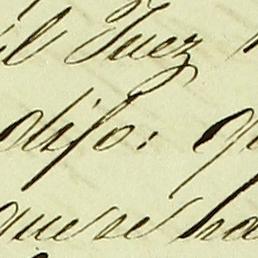 el Juez
dijo: q
que se ha